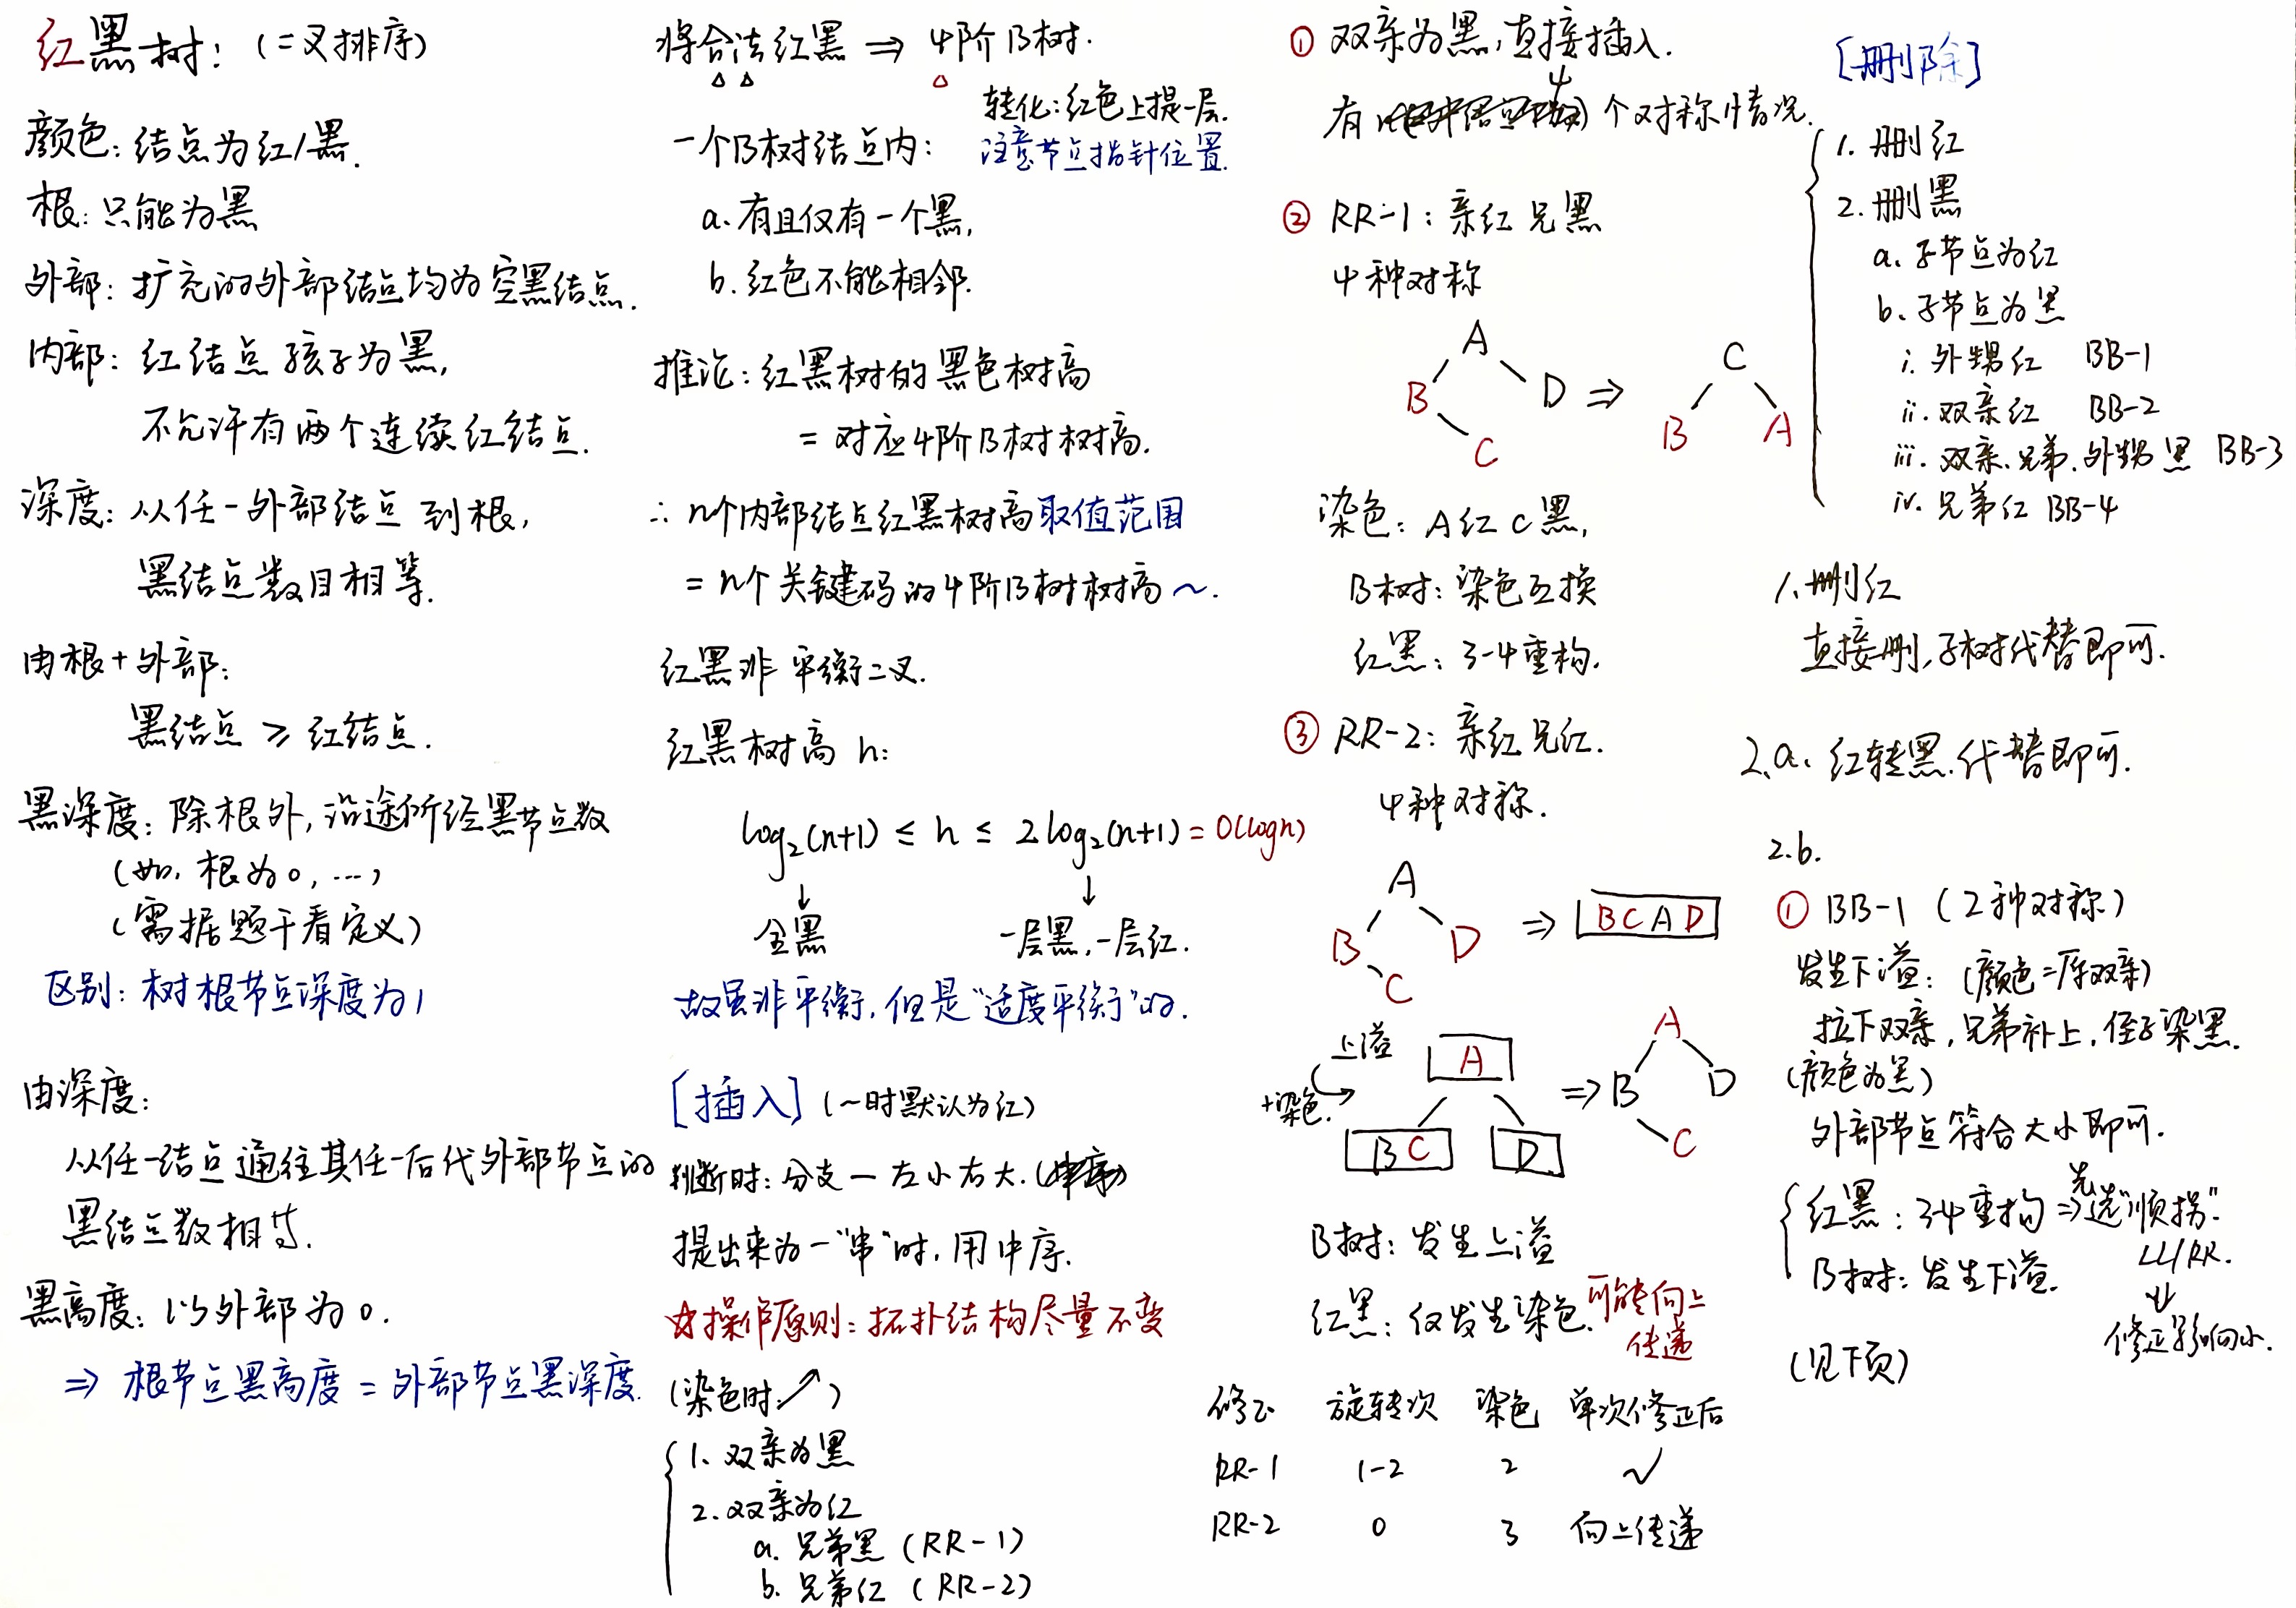 红黑树：（二叉排序）
颜色：结点为红/黑.
根：只能为黑
外部：扩充的外部结点均为空黑结点.
内部：红结点孩子为黑,
不允许有两个连续红结点.
深度：从任一外部结点到根,
黑结点数目相等.
由根+外部：
黑结点 ≥ 红结点.
黑深度：除根外,沿途所经黑节点数
(如,根为0,…)
(需据题干看定义)
区别：树根节点深度为1
由深度：
从任一结点通往其任一后代外部节点的
黑结点数相等.
黑高度：以外部为0.
⇒ 根节点黑高度 = 外部节点黑深度.
将合法红黑 ⇒ 4阶B树.
转化:红色上提一层.
一个B树结点内：
注意节点指针位置.
a. 有且仅有一个黑,
b. 红色不能相邻.
推论：红黑树的黑色树高
= 对应4阶B树树高.
∴ n个内部结点红黑树高取值范围
= n个关键码的4阶B树树高～.
红黑非平衡二叉.
红黑树高 h:
log₂(n+1) ≤ h ≤ 2log₂(n+1) = O(logn)
↓ ↓
全黑 一层黑,一层红.
故虽非平衡,但是“适度平衡”的.
[插入] (～时默认为红)
判断时：分支一左小右大.
提出来为一“串”时,用中序.
☆操作原则：拓扑结构尽量不变
(染色时↗)
1. 双亲为黑
2. 双亲为红
a. 兄弟黑 (RR-1)
b. 兄弟红 (RR-2)
① 双亲为黑,直接插入.
有 4 个对称情况.
② RR-1：亲红兄黑
4种对称
A
B D ⇒ C
C B A
染色：A红C黑,
B树：染色互换
红黑：3-4重构.
③ RR-2：亲红兄红.
4种对称.
A
B D ⇒ BCAD
C
上溢
+染色.
A ⇒ A
BC D B D
C
B树：发生上溢
红黑：仅发生染色.可能向上
传递
修正 旋转次 染色 单次修正后
RR-1 1-2 2 √
RR-2 0 3 向上传递
[删除]
1. 删红
2. 删黑
a. 子节点为红
b. 子节点为黑
i. 外甥红 BB-1
ii. 双亲红 BB-2
iii. 双亲.兄弟.外甥黑 BB-3
iv. 兄弟红 BB-4
1. 删红
直接删,子树代替即可.
2.a. 红转黑.代替即可.
2.b.
① BB-1 (2种对称)
发生下溢：(颜色=原双亲)
拉下双亲,兄弟补上,侄子染黑.
(颜色为黑)
外部节点符合大小即可.
红黑：34重构 ⇒ 先选“顺拐”
LL/RR.
B树：发生下溢.
⇓
修正影响小.
(见下页)